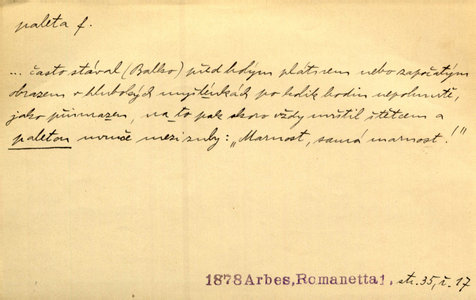 paleta f.
... často stával (Balko) před holým plátnem nebo započatým
obrazem v hlubokých myšlénkách po kolik hodin nepohnutě,
jako přimrazen, na to pak skoro vždy mrštil štětcem a
paletou mruče mezi zuby: „Marnost, samá marnost!"
1878 Arbes, Romanetta 1, str. 35, ř. 17